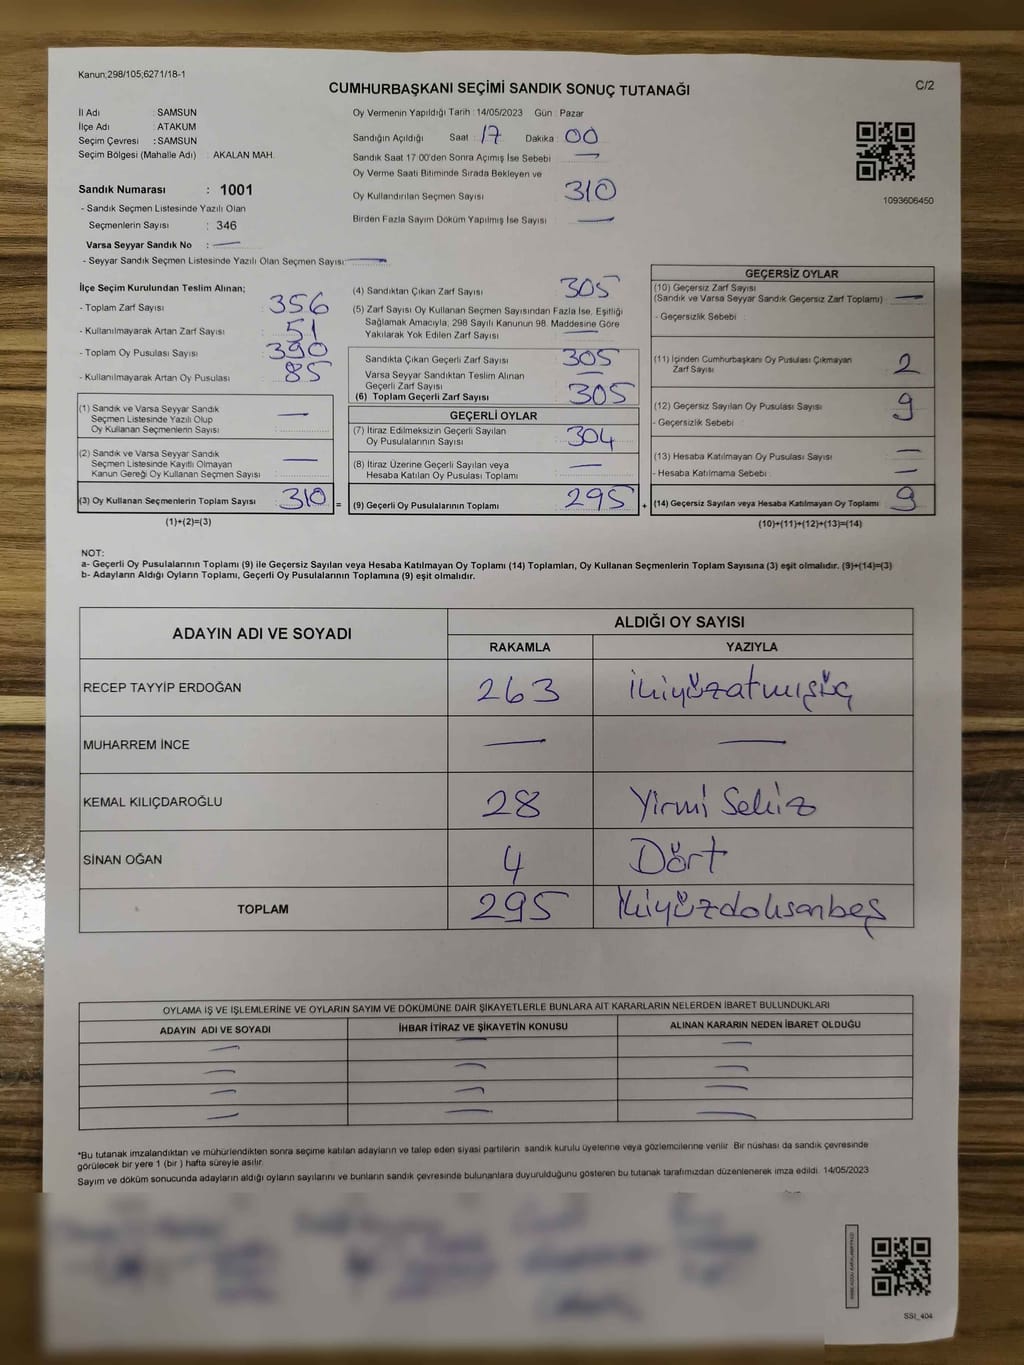 Kanun;298/105;6271/18-1
CUMHURBAŞKANI SEÇİMİ SANDIK SONUÇ TUTANAĞI
C/2
İl Adı : SAMSUN
İlçe Adı : ATAKUM
Seçim Çevresi : SAMSUN
Seçim Bölgesi (Mahalle Adı) : AKALAN MAH.
Sandık Numarası : 1001
- Sandık Seçmen Listesinde Yazılı Olan
Seçmenlerin Sayısı : 346
Varsa Seyyar Sandık No : —
- Seyyar Sandık Seçmen Listesinde Yazılı Olan Seçmen Sayısı: —
Oy Vermenin Yapıldığı Tarih : 14/05/2023 Gün : Pazar
Sandığın Açıldığı Saat : 17 Dakika : 00
Sandık Saat 17:00'den Sonra Açımış İse Sebebi : —
Oy Verme Saati Bitiminde Sırada Bekleyen ve
Oy Kullandırılan Seçmen Sayısı : 310
Birden Fazla Sayım Döküm Yapılmış İse Sayısı : —
1093606450
İlçe Seçim Kurulundan Teslim Alınan;
- Toplam Zarf Sayısı : 356
- Kullanılmayarak Artan Zarf Sayısı : 51
- Toplam Oy Pusulası Sayısı : 390
- Kullanılmayarak Artan Oy Pusulası : 85
(1) Sandık ve Varsa Seyyar Sandık
Seçmen Listesinde Yazılı Olup
Oy Kullanan Seçmenlerin Sayısı : —
(2) Sandık ve Varsa Seyyar Sandık
Seçmen Listesinde Kayıtlı Olmayan
Kanun Gereği Oy Kullanan Seçmen Sayısı : —
(3) Oy Kullanan Seçmenlerin Toplam Sayısı : 310 =
(1)+(2)=(3)
(4) Sandıktan Çıkan Zarf Sayısı : 305
(5) Zarf Sayısı Oy Kullanan Seçmen Sayısından Fazla İse, Eşitliği
Sağlamak Amacıyla, 298 Sayılı Kanunun 98. Maddesine Göre
Yakılarak Yok Edilen Zarf Sayısı : —
Sandıkta Çıkan Geçerli Zarf Sayısı : 305
Varsa Seyyar Sandıktan Teslim Alınan
Geçerli Zarf Sayısı : —
(6) Toplam Geçerli Zarf Sayısı : 305
GEÇERLİ OYLAR
(7) İtiraz Edilmeksizin Geçerli Sayılan
Oy Pusulalarının Sayısı : 304
(8) İtiraz Üzerine Geçerli Sayılan veya
Hesaba Katılan Oy Pusulası Toplamı : —
(9) Geçerli Oy Pusulalarının Toplamı : 295 +
GEÇERSİZ OYLAR
(10) Geçersiz Zarf Sayısı
(Sandık ve Varsa Seyyar Sandık Geçersiz Zarf Toplamı) : —
- Geçersizlik Sebebi :
(11) İçinden Cumhurbaşkanı Oy Pusulası Çıkmayan
Zarf Sayısı : 2
(12) Geçersiz Sayılan Oy Pusulası Sayısı : 9
- Geçersizlik Sebebi :
(13) Hesaba Katılmayan Oy Pusulası Sayısı : —
- Hesaba Katılmama Sebebi : —
(14) Geçersiz Sayılan veya Hesaba Katılmayan Oy Toplamı : 9
(10)+(11)+(12)+(13)=(14)
NOT:
a- Geçerli Oy Pusulalarının Toplamı (9) ile Geçersiz Sayılan veya Hesaba Katılmayan Oy Toplamı (14) Toplamları, Oy Kullanan Seçmenlerin Toplam Sayısına (3) eşit olmalıdır. (9)+(14)=(3)
b- Adayların Aldığı Oyların Toplamı, Geçerli Oy Pusulalarının Toplamına (9) eşit olmalıdır.
ADAYIN ADI VE SOYADI
ALDIĞI OY SAYISI
RAKAMLA YAZIYLA
RECEP TAYYİP ERDOĞAN 263 ikiyüzatmışüç
MUHARREM İNCE — —
KEMAL KILIÇDAROĞLU 28 Yirmi Sekiz
SİNAN OĞAN 4 Dört
TOPLAM 295 İkiyüzdoksanbeş
OYLAMA İŞ VE İŞLEMLERİNE VE OYLARIN SAYIM VE DÖKÜMÜNE DAİR ŞİKAYETLERLE BUNLARA AİT KARARLARIN NELERDEN İBARET BULUNDUKLARI
ADAYIN ADI VE SOYADI İHBAR İTİRAZ VE ŞİKAYETİN KONUSU ALINAN KARARIN NEDEN İBARET OLDUĞU
— — —
— — —
— — —
— — —
*Bu tutanak imzalandıktan ve mühürlendikten sonra seçime katılan adayların ve talep eden siyasi partilerin sandık kurulu üyelerine veya gözlemcilerine verilir. Bir nüshası da sandık çevresinde
görülecek bir yere 1 (bir) hafta süreyle asılır.
Sayım ve döküm sonucunda adayların aldığı oyların sayılarını ve bunların sandık çevresinde bulunanlara duyurulduğunu gösteren bu tutanak tarafımızdan düzenlenerek imza edildi. 14/05/2023
SSI_404